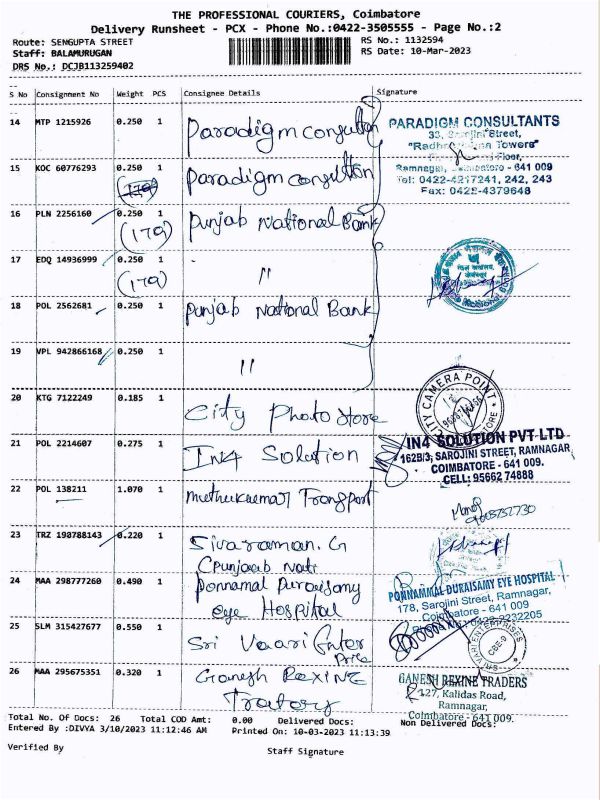 THE PROFESSIONAL COURIERS, Coimbatore
Delivery Runsheet - PCX - Phone No.:0422-3505555 - Page No.:2
Route: SENGUPTA STREET
RS No.: 1132594
Staff: BALAMURUGAN
RS Date: 10-Mar-2023
DRS No.: DCJB113259402
S No Consignment No Weight PCS Consignee Details Signature
14 MTP 1215926 0.250 1 Paradigm
PARADIGM CONSULTANTS
33, Sarojini Street,
Towers"
Floor,
Ramnagar, Coimbatore - 641 009
Tel: 0422-4217241, 242, 243
Fax: 0422-4379648
15 KOC 60776293 0.250 1 Paradigm
(179)
16 PLN 2256160 0.250 1 Punjab National Bank
(179)
17 EDQ 14936999 0.250 1 "
(179)
18 POL 2562681 0.250 1 Punjab National Bank
19 VPL 942866168 0.250 1 "
20 KTG 7122249 0.185 1 City Photo Store
CITY CAMERA POINT
21 POL 2214607 0.275 1 IN4 Solution
IN4 SOLUTION PVT LTD
162B/3, SAROJINI STREET, RAMNAGAR
COIMBATORE - 641 009.
CELL: 95662 74888
22 POL 138211 1.070 1 muthukumar Transport
23 TRZ 190788143 0.220 1 Sivaraman. G
(Punjab Nati
24 MAA 298777260 0.490 1 Ponnamal Duraisamy
eye Hospital
PONNAMMAL DURAISAMY EYE HOSPITAL
178, Sarojini Street, Ramnagar,
Coimbatore - 641 009
0422-2232205
25 SLM 315427677 0.550 1 Sri Vaari Enter
Price
26 MAA 295675351 0.320 1 Ganesh REXINE
GANESH REXINE TRADERS
127, Kalidas Road,
Ramnagar,
Coimbatore - 641 009.
Total No. Of Docs: 26 Total COD Amt: 0.00 Delivered Docs: Non Delivered Docs:
Entered By :DIVYA 3/10/2023 11:12:46 AM Printed On: 10-03-2023 11:13:39
Verified By
Staff Signature